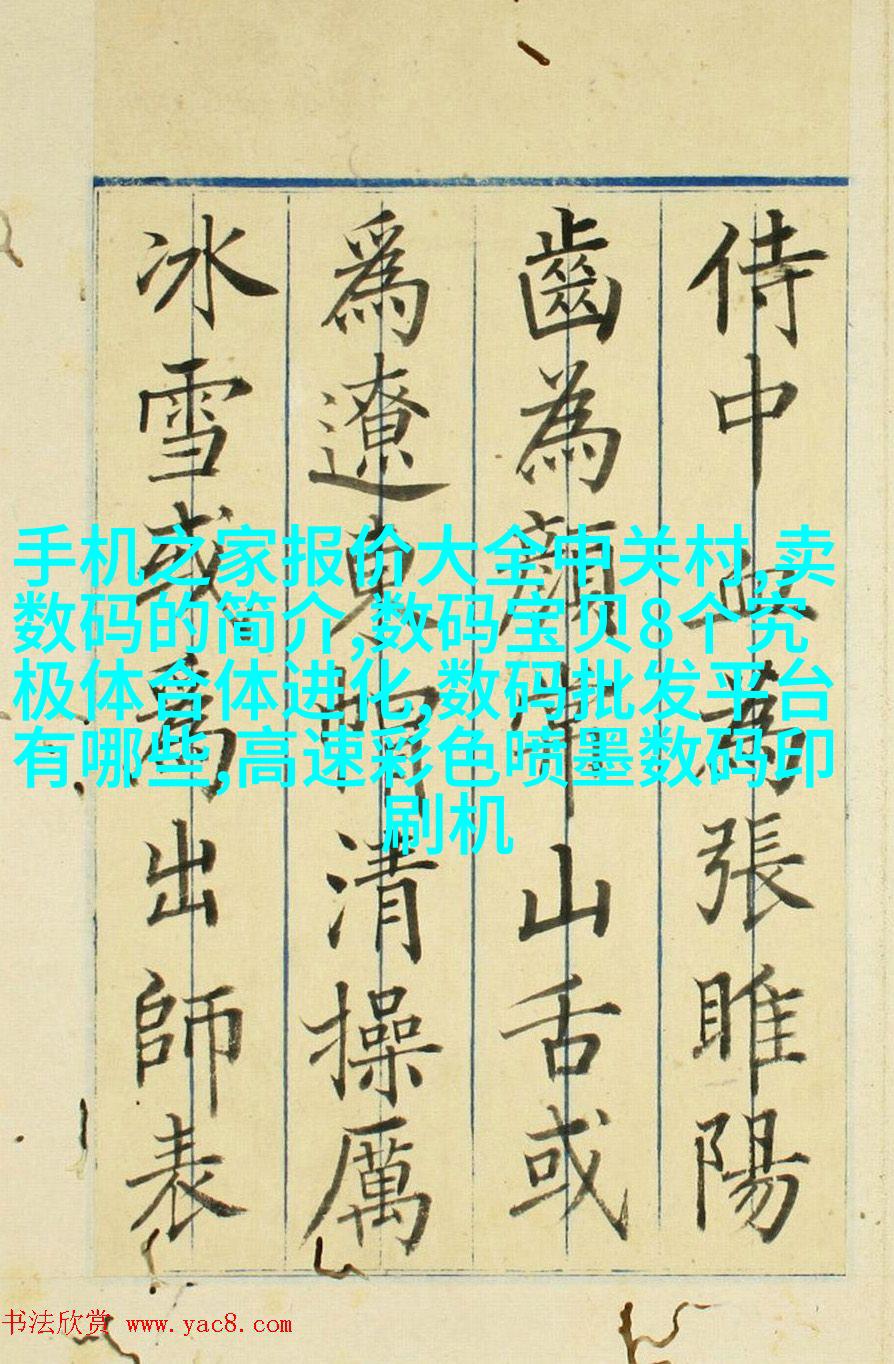 侍中血為張睢陽
齒為顏常山舌或
爲遼東帽清操厲
冰雪或爲出師表
手机之家报价大全中关村,卖
数码的简介,数码宝贝8个究
极体合体进化,数码批发平台
有哪些,高速彩色喷墨数码印
刷机
书法欣赏 www.yac8.com